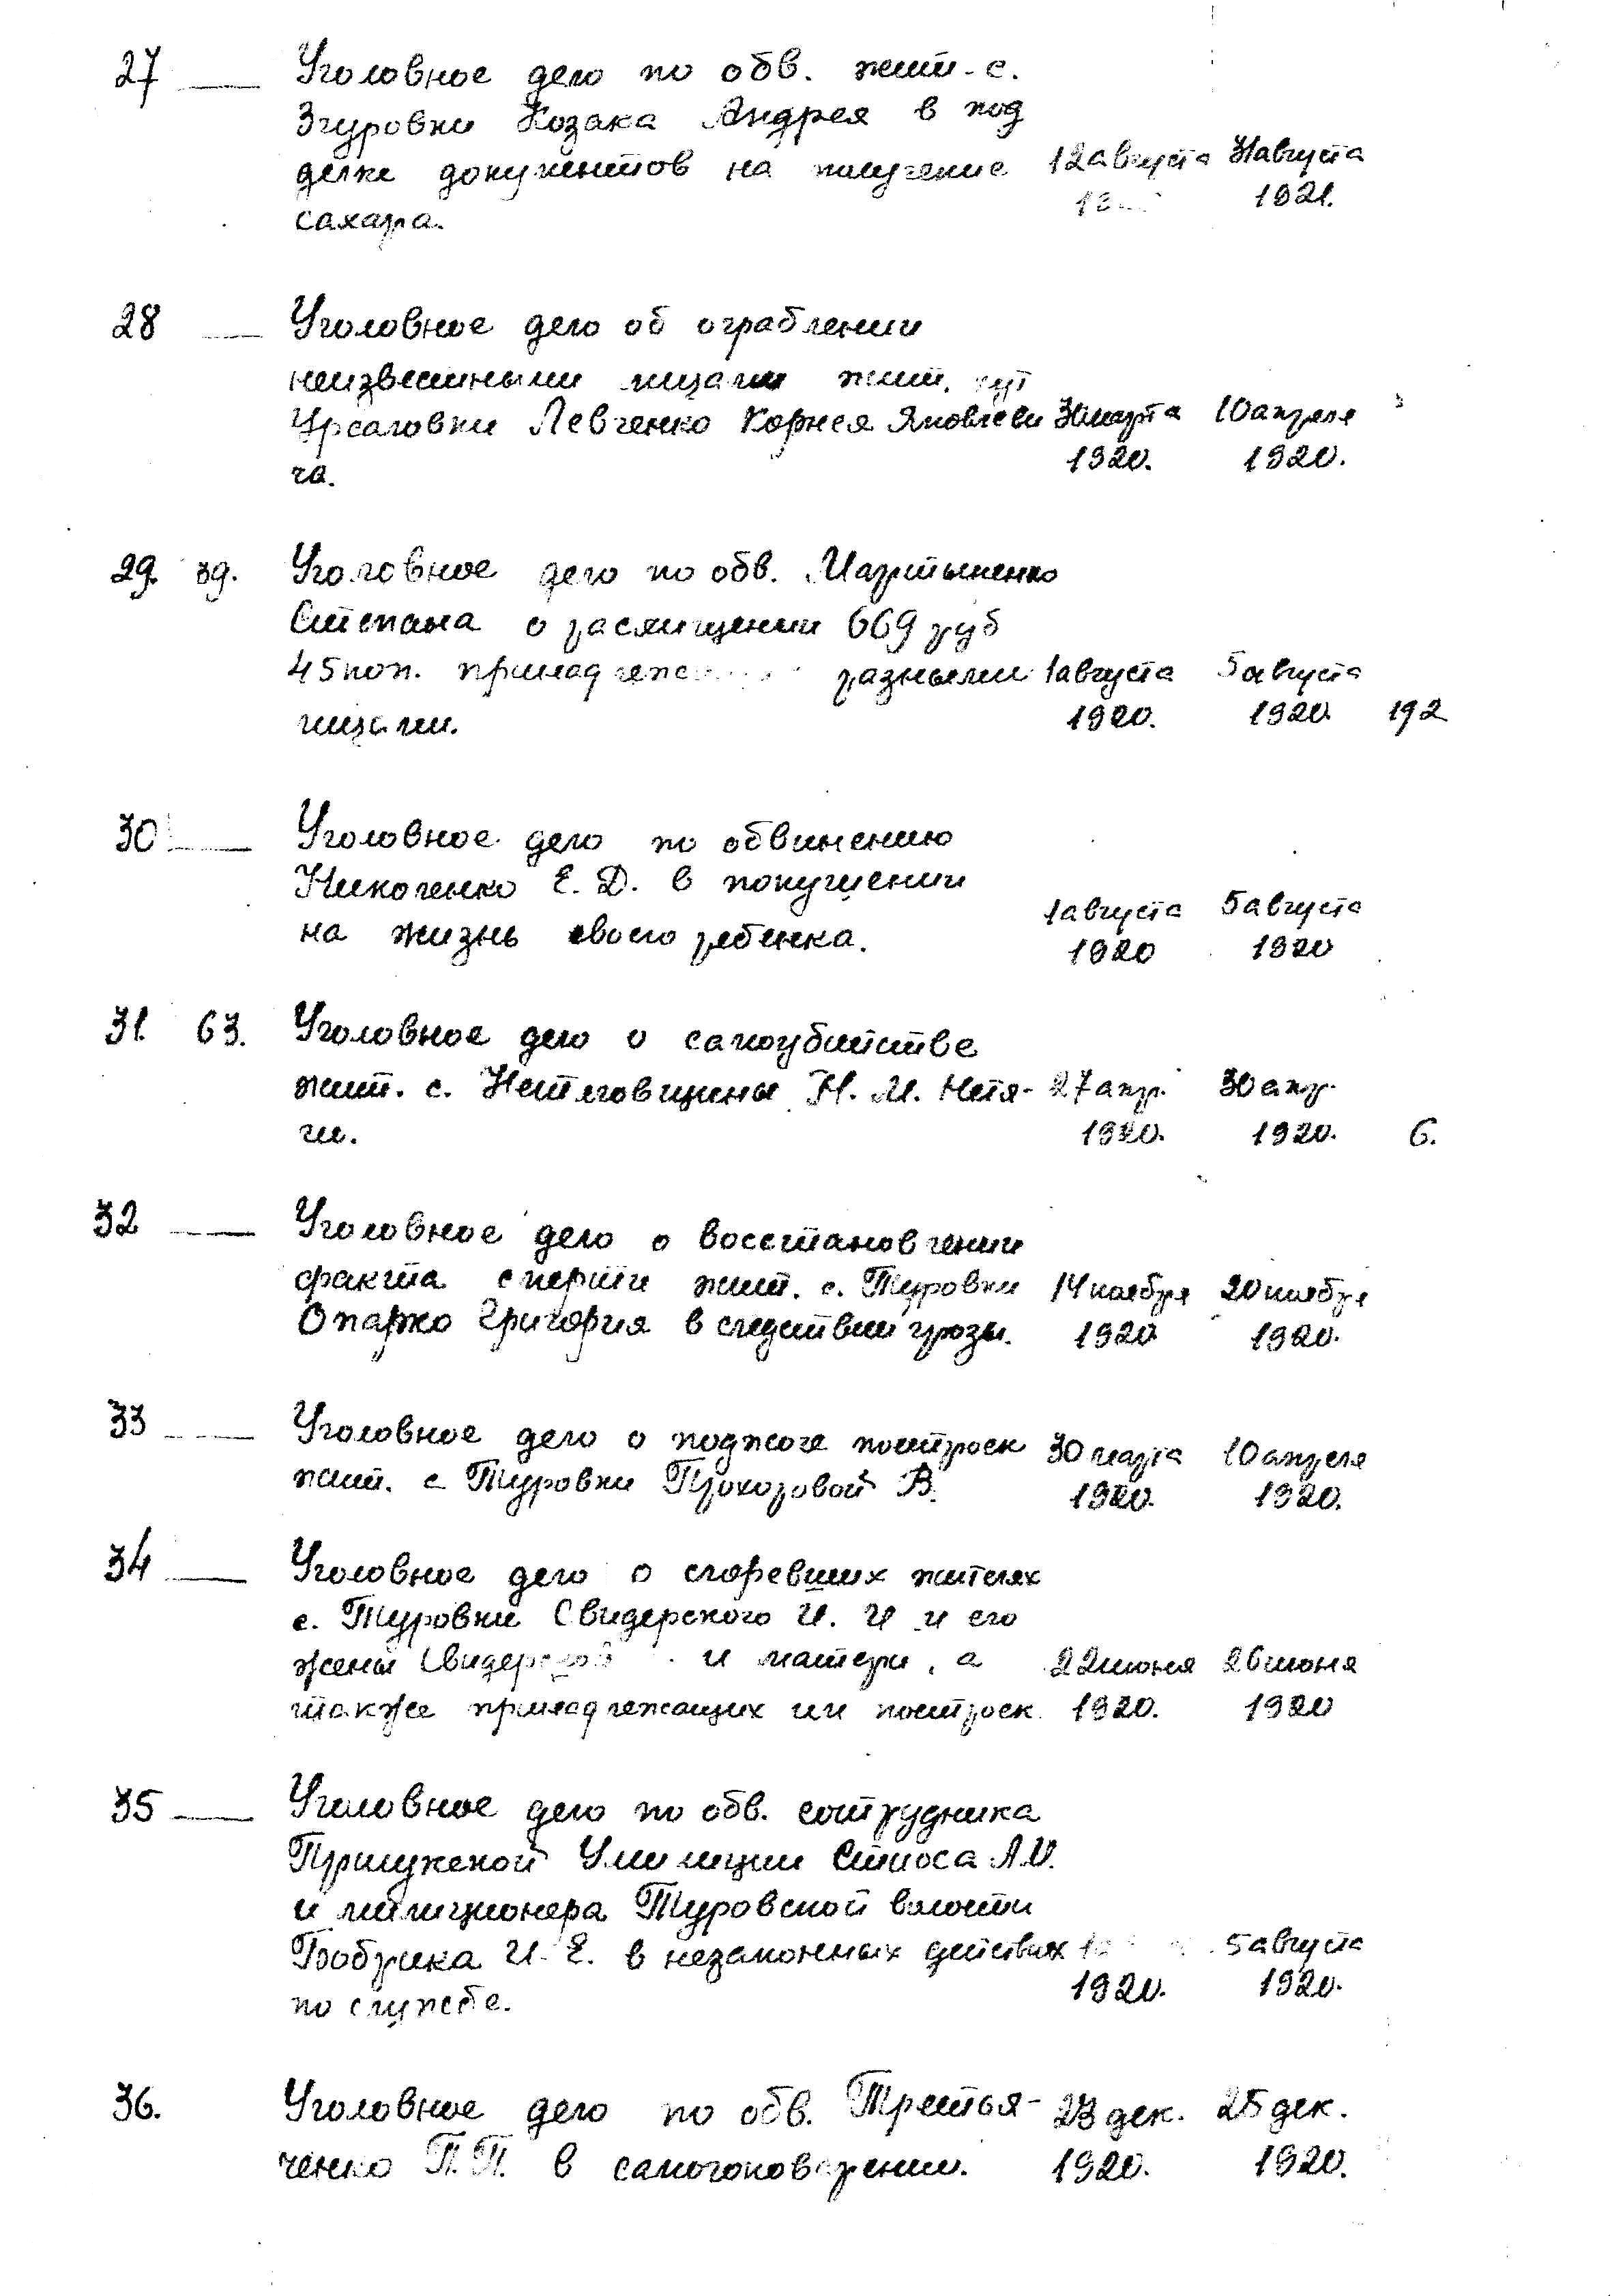 27 — Уголовное дело по обв. жит. с.
Згуровки Козака Андрея в под
делке документов на получение 12 августа 31 августа
сахара. 1921.
28 — Уголовное дело об ограблении
неизвестными лицами жит. хут
Левченко Корнея Яковлеви 30 марта 10 апреля
ча. 1920. 1920.
29. 39. Уголовное дело по обв. Мартыненко
Степана о расхищении 669 руб
45 коп. разными 1 августа 5 августа
лицами. 1920. 1920. 192
30 — Уголовное дело по обвинению
Николенко Е. Д. в покушении
на жизнь своего ребенка. 1 августа 5 августа
1920 1920
31. 63. Уголовное дело о самоубийстве
жит. с. Нетяговщины Н. М. Нетя- 27 апр. 30 апр.
ги. 1920. 1920. 6.
32 — Уголовное дело о восстановлении
факта смерти жит. с. Туровки 14 ноября 20 ноября
Опарко Григория в следствии грозы. 1920 1920.
33 — Уголовное дело о поджоге построек 30 марта 10 апреля
жит. с Туровки Прохоровой В. 1920. 1920.
34 — Уголовное дело о сгоревших жителях
с. Туровки Свидерского И. И и его
жены Свидерской и матери, а 22 июня 26 июня
также принадлежащих им построек 1920. 1920
35 — Уголовное дело по обв. сотрудника
Прилукской Умилиции А.И.
и милиционера Туровской волости
Бобрика И. Е. в незаконных действиях 5 августа
по службе. 1920. 1920.
36. Уголовное дело по обв. Третья- 23 дек. 25 дек.
ченко П.П. в самогоноварении. 1920. 1920.